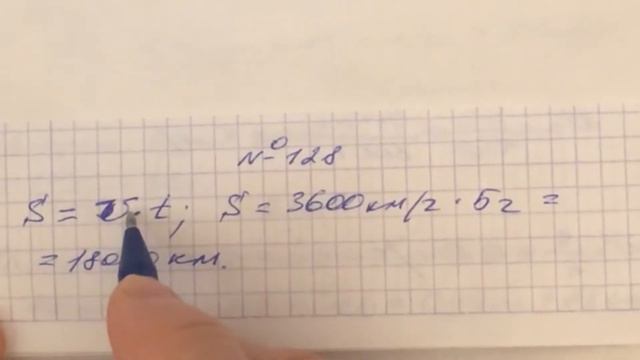 №128
S = v · t; S = 3600 км/г · 5г =
= 18000 км.